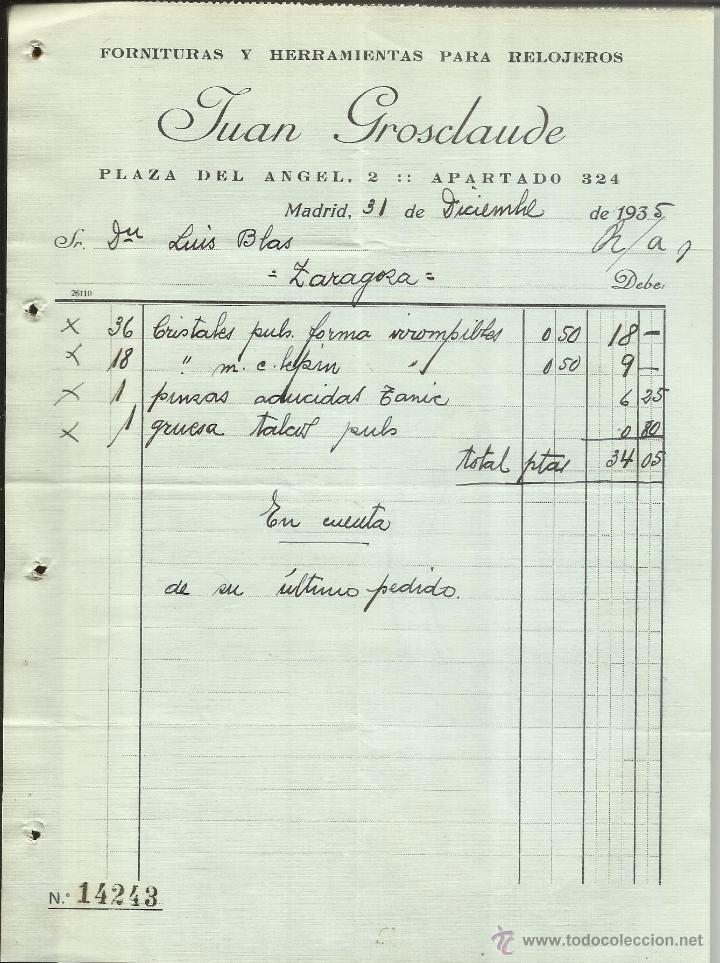 FORNITURAS Y HERRAMIENTAS PARA RELOJEROS
Juan Grosclaude
PLAZA DEL ANGEL, 2 :: APARTADO 324
Madrid, 31 de Diciembre de 1935
Sr. Dn Luis Blas
= Zaragoza =
Debe:
26110
X 36 Cristales puls. forma irrompibles 0 50 18 —
X 18 " m. c. lepin " 0 50 9 —
X 1 pinzas 6 25
X 1 gruesa puls 0 80
total ptas 34 05
En cuenta
de su último pedido.
N.° 14243
www.todocoleccion.net